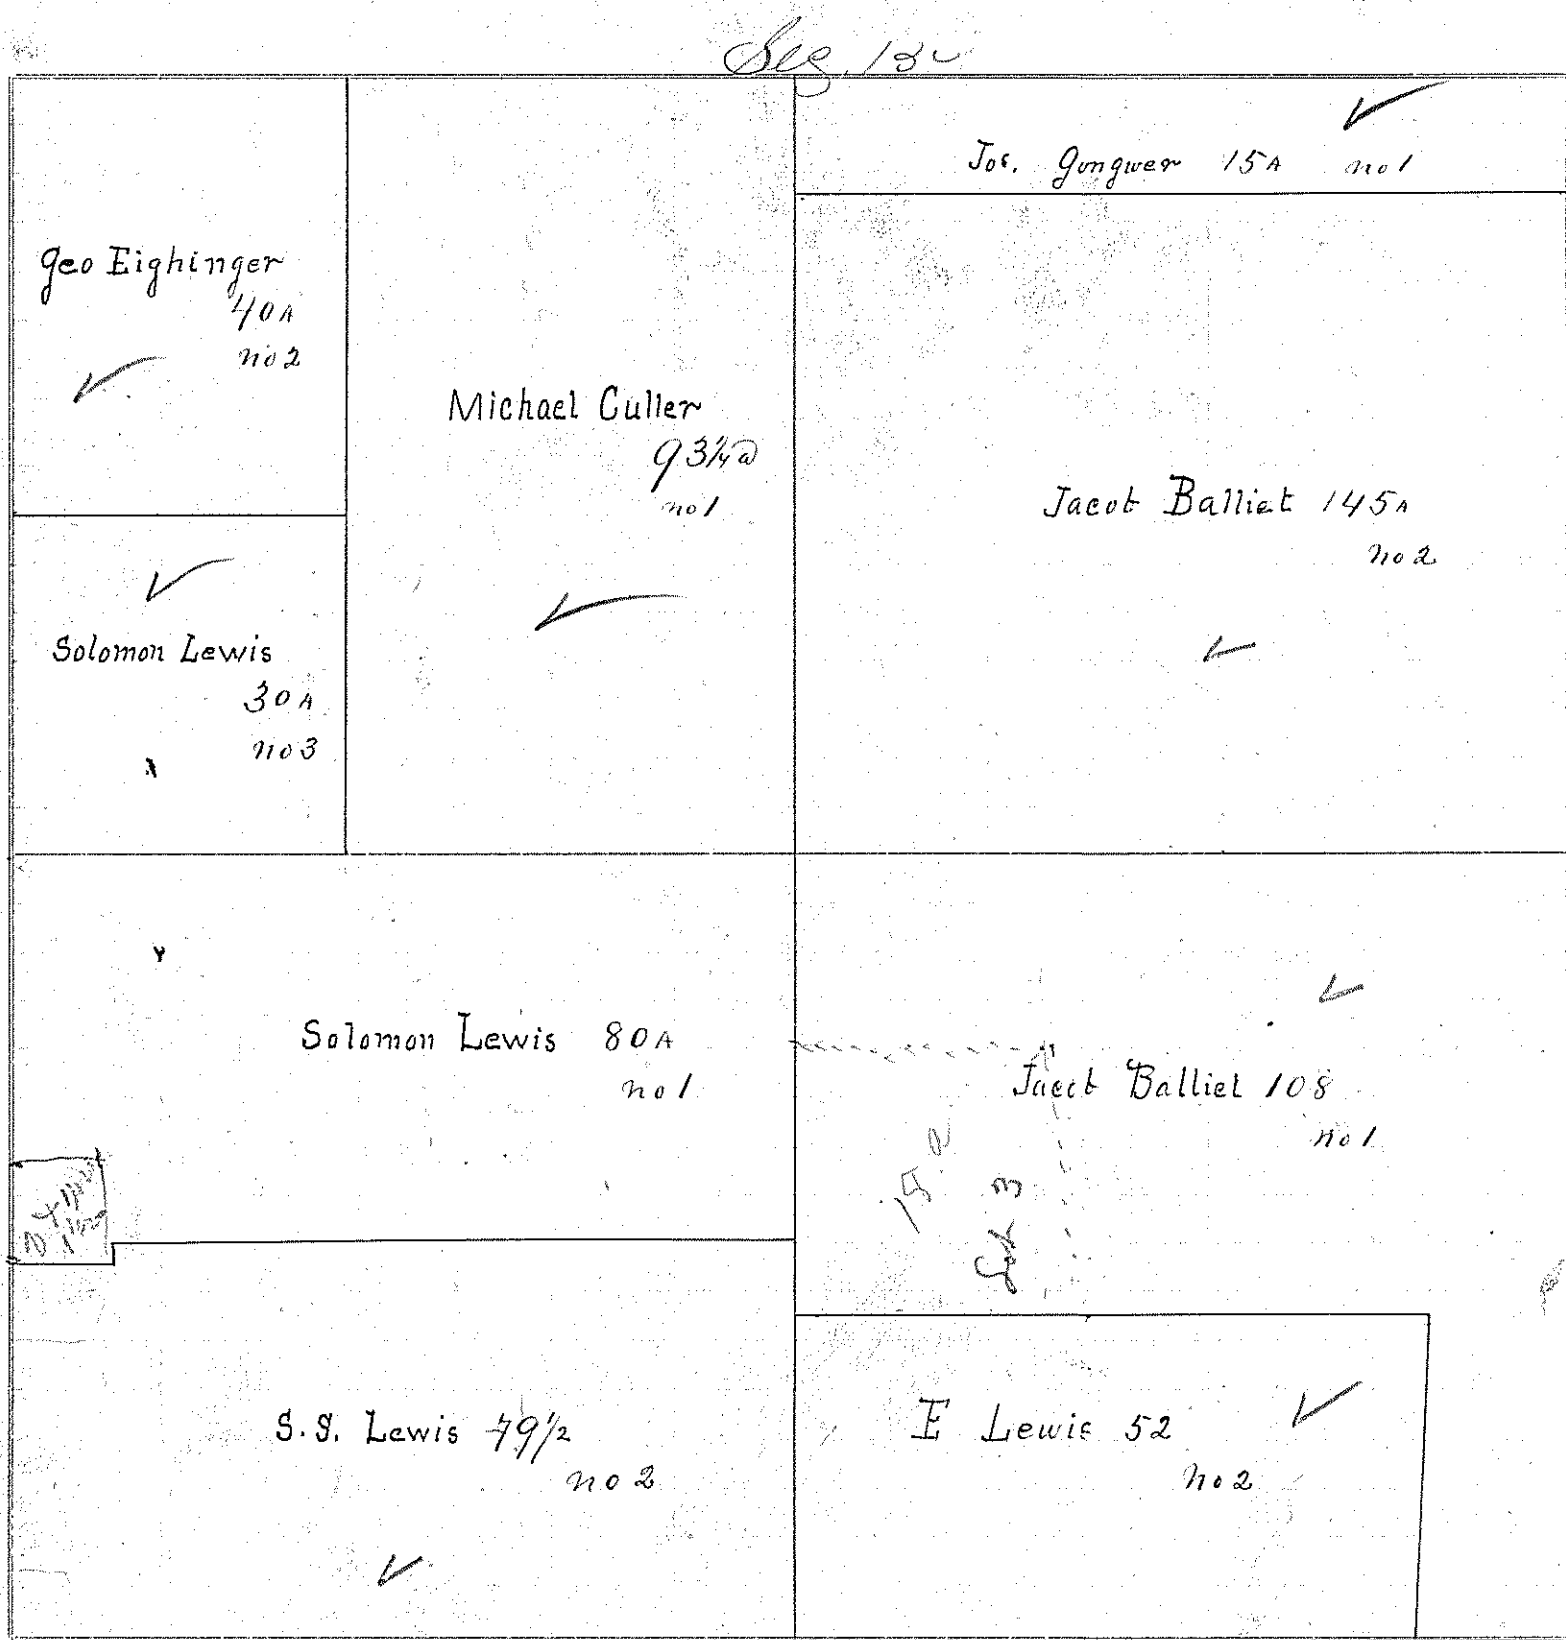 Sec. 13
Jos. Gongwer 15A no 1
Geo Eighinger
40A
no 2
Michael Culler
93¼a
no 1
Jacob Balliet 145A
no 2
Solomon Lewis
30A
no 3
Solomon Lewis 80A
no 1
Jacob Balliet 108
no 1
15 a
Lot 3
S.S. Lewis 79½
no 2
E Lewis 52
no 2